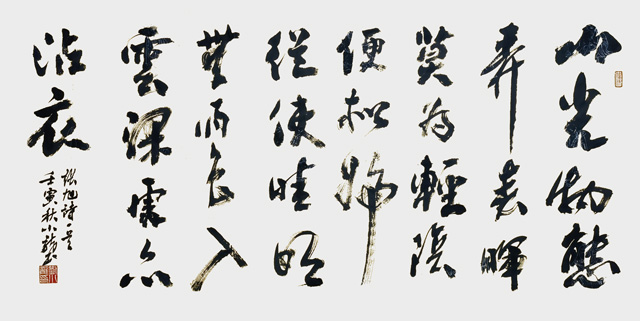 山光物態
弄春暉
莫为輕陰
便拟歸
縱使晴明
無雨色入
雲深處亦
沾衣
張旭詩一首
壬寅秋小龍书